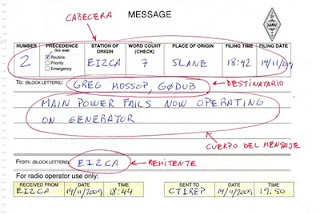 CABECERA
MESSAGE
NUMBER PRECEDENCE STATION OF ORIGIN WORD COUNT (CHECK) PLACE OF ORIGIN FILING TIME FILING DATE
2 Routine Priority Emergency EI2CA 7 SLANE 18:42 14/11/009
To: (BLOCK LETTERS) GREG MOSSOP, G0DUB
DESTINATARIO
MAIN POWER FAILS NOW OPERATING
ON GENERATOR
CUERPO DEL MENSAJE
From: (BLOCK LETTERS) EI2CA
REMITENTE
For radio operator use only:
RECEIVED FROM DATE TIME SENT TO DATE TIME
EI2CA 14/11/2009 18:44 CT1REP 14/11/2009 19.50